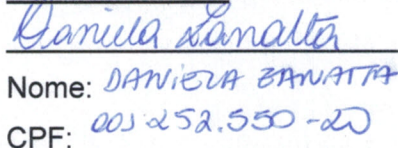 Daniela Zanatta
Nome: DANIELA ZANATTA
CPF: 005.252.550-20